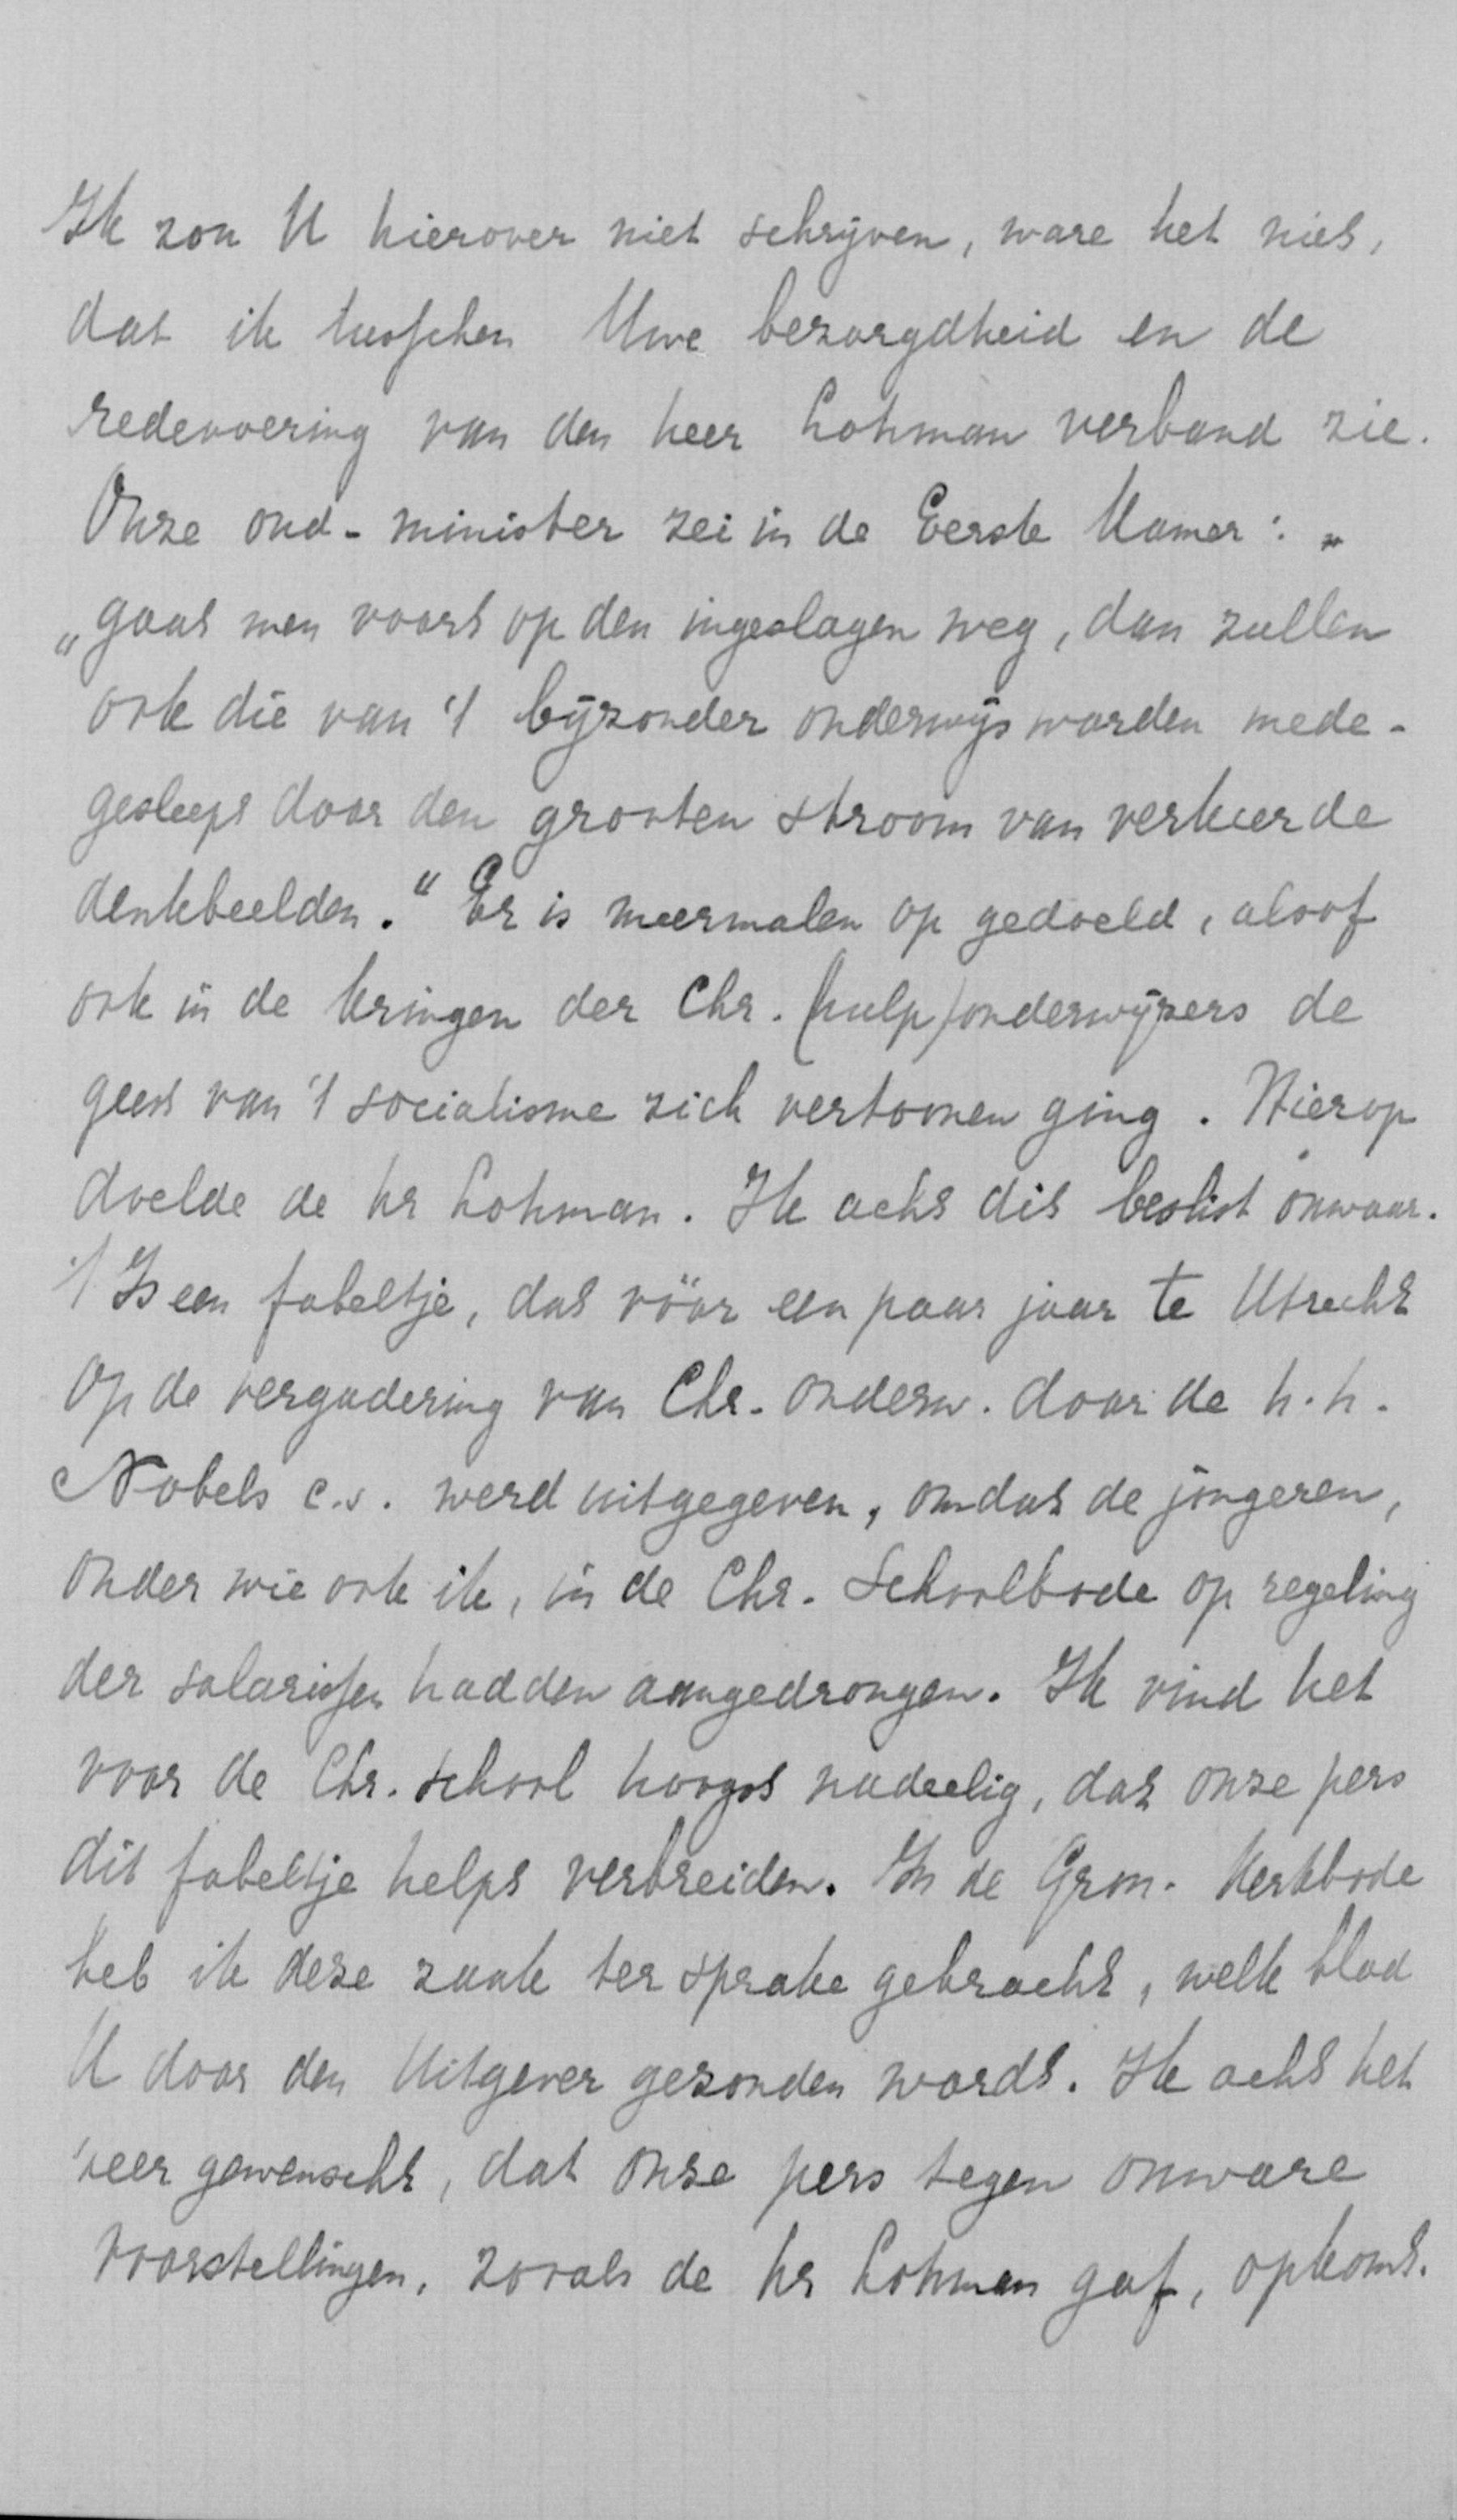 Ik zou U hierover niet schrijven, ware het niet,
dat ik tusschen Uwe bezorgdheid en de
redevoering van den heer Lohman verband zie.
Onze oud-minister zei in de Eerste Kamer: „
„gaat men voort op den ingeslagen weg, dan zullen
ook die van 't bijzonder onderwijs worden mede-
gesleept door den grooten stroom van verkeerde
denkbeelden.“ Er is meermalen op gedoeld, alsof
ook in de kringen der Chr. (hulp)onderwijzers de
geest van 't socialisme zich vertoonen ging. Hierop
doelde de hr Lohman. Ik acht dit beslist onwaar.
't Is een fabeltje, dat vóór een paar jaar te Utrecht
op de vergadering van Chr. onderw. door de h.h.
Nobels c.s. werd uitgegeven, omdat de jongeren,
onder wie ook ik, in de Chr. Schoolbode op regeling
der salarissen hadden aangedrongen. Ik vind het
voor de Chr. school hoogst nadeelig, dat onze pers
dit fabeltje helpt verbreiden. In de Gron. Kerkbode
heb ik deze zaak ter sprake gebracht, welk blad
U door den Uitgever gezonden wordt. Ik acht het
zeer gewenscht, dat onze pers tegen onware
voorstellingen, zooals de hr Lohman gaf, opkomt.